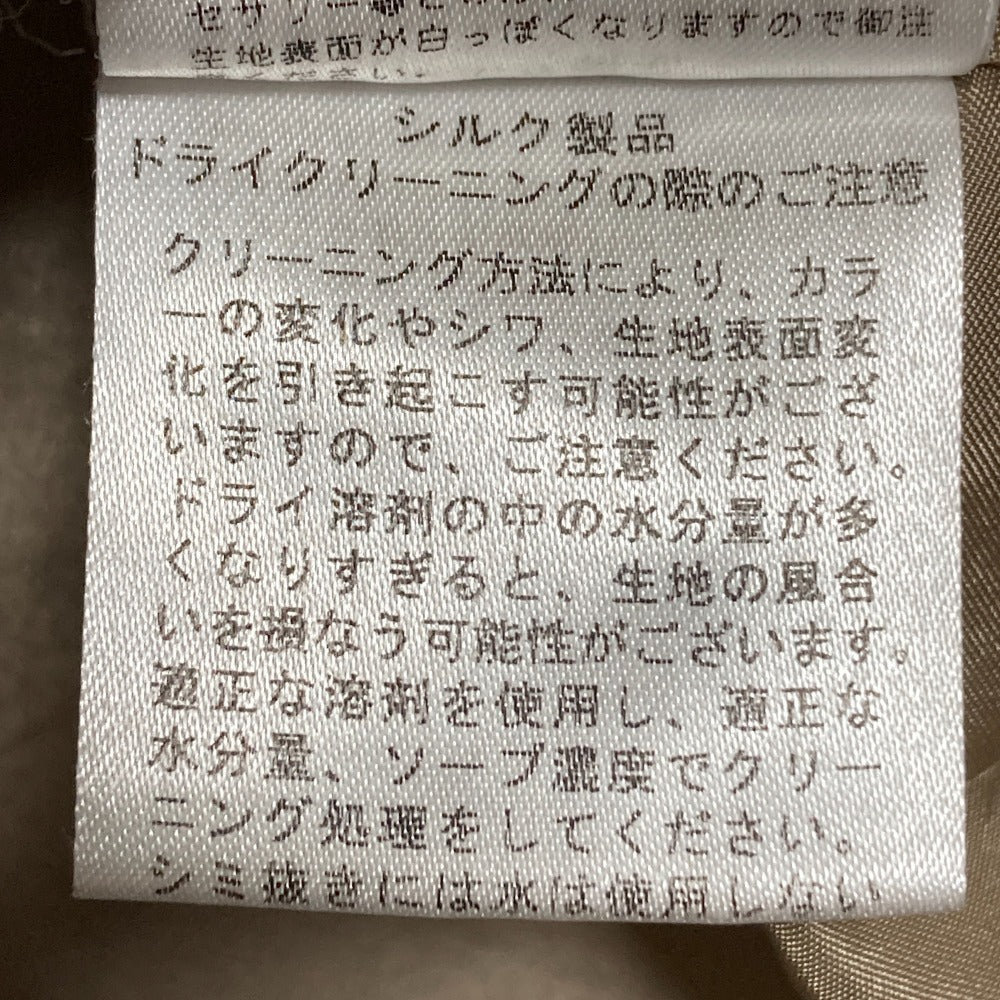 生地表面が白っぽくなりますので御注
シルク製品
ドライクリーニングの際のご注意
クリーニング方法により、カラ
ーの変化やシワ、生地表面変
化を引き起こす可能性がござ
いますので、ご注意ください。
ドライ溶剤の中の水分量が多
くなりすぎると、生地の風合
いを損なう可能性がございます。
適正な溶剤を使用し、適正な
水分量、ソープ濃度でクリー
ニング処理をしてください。
シミ抜きには水は使用しない